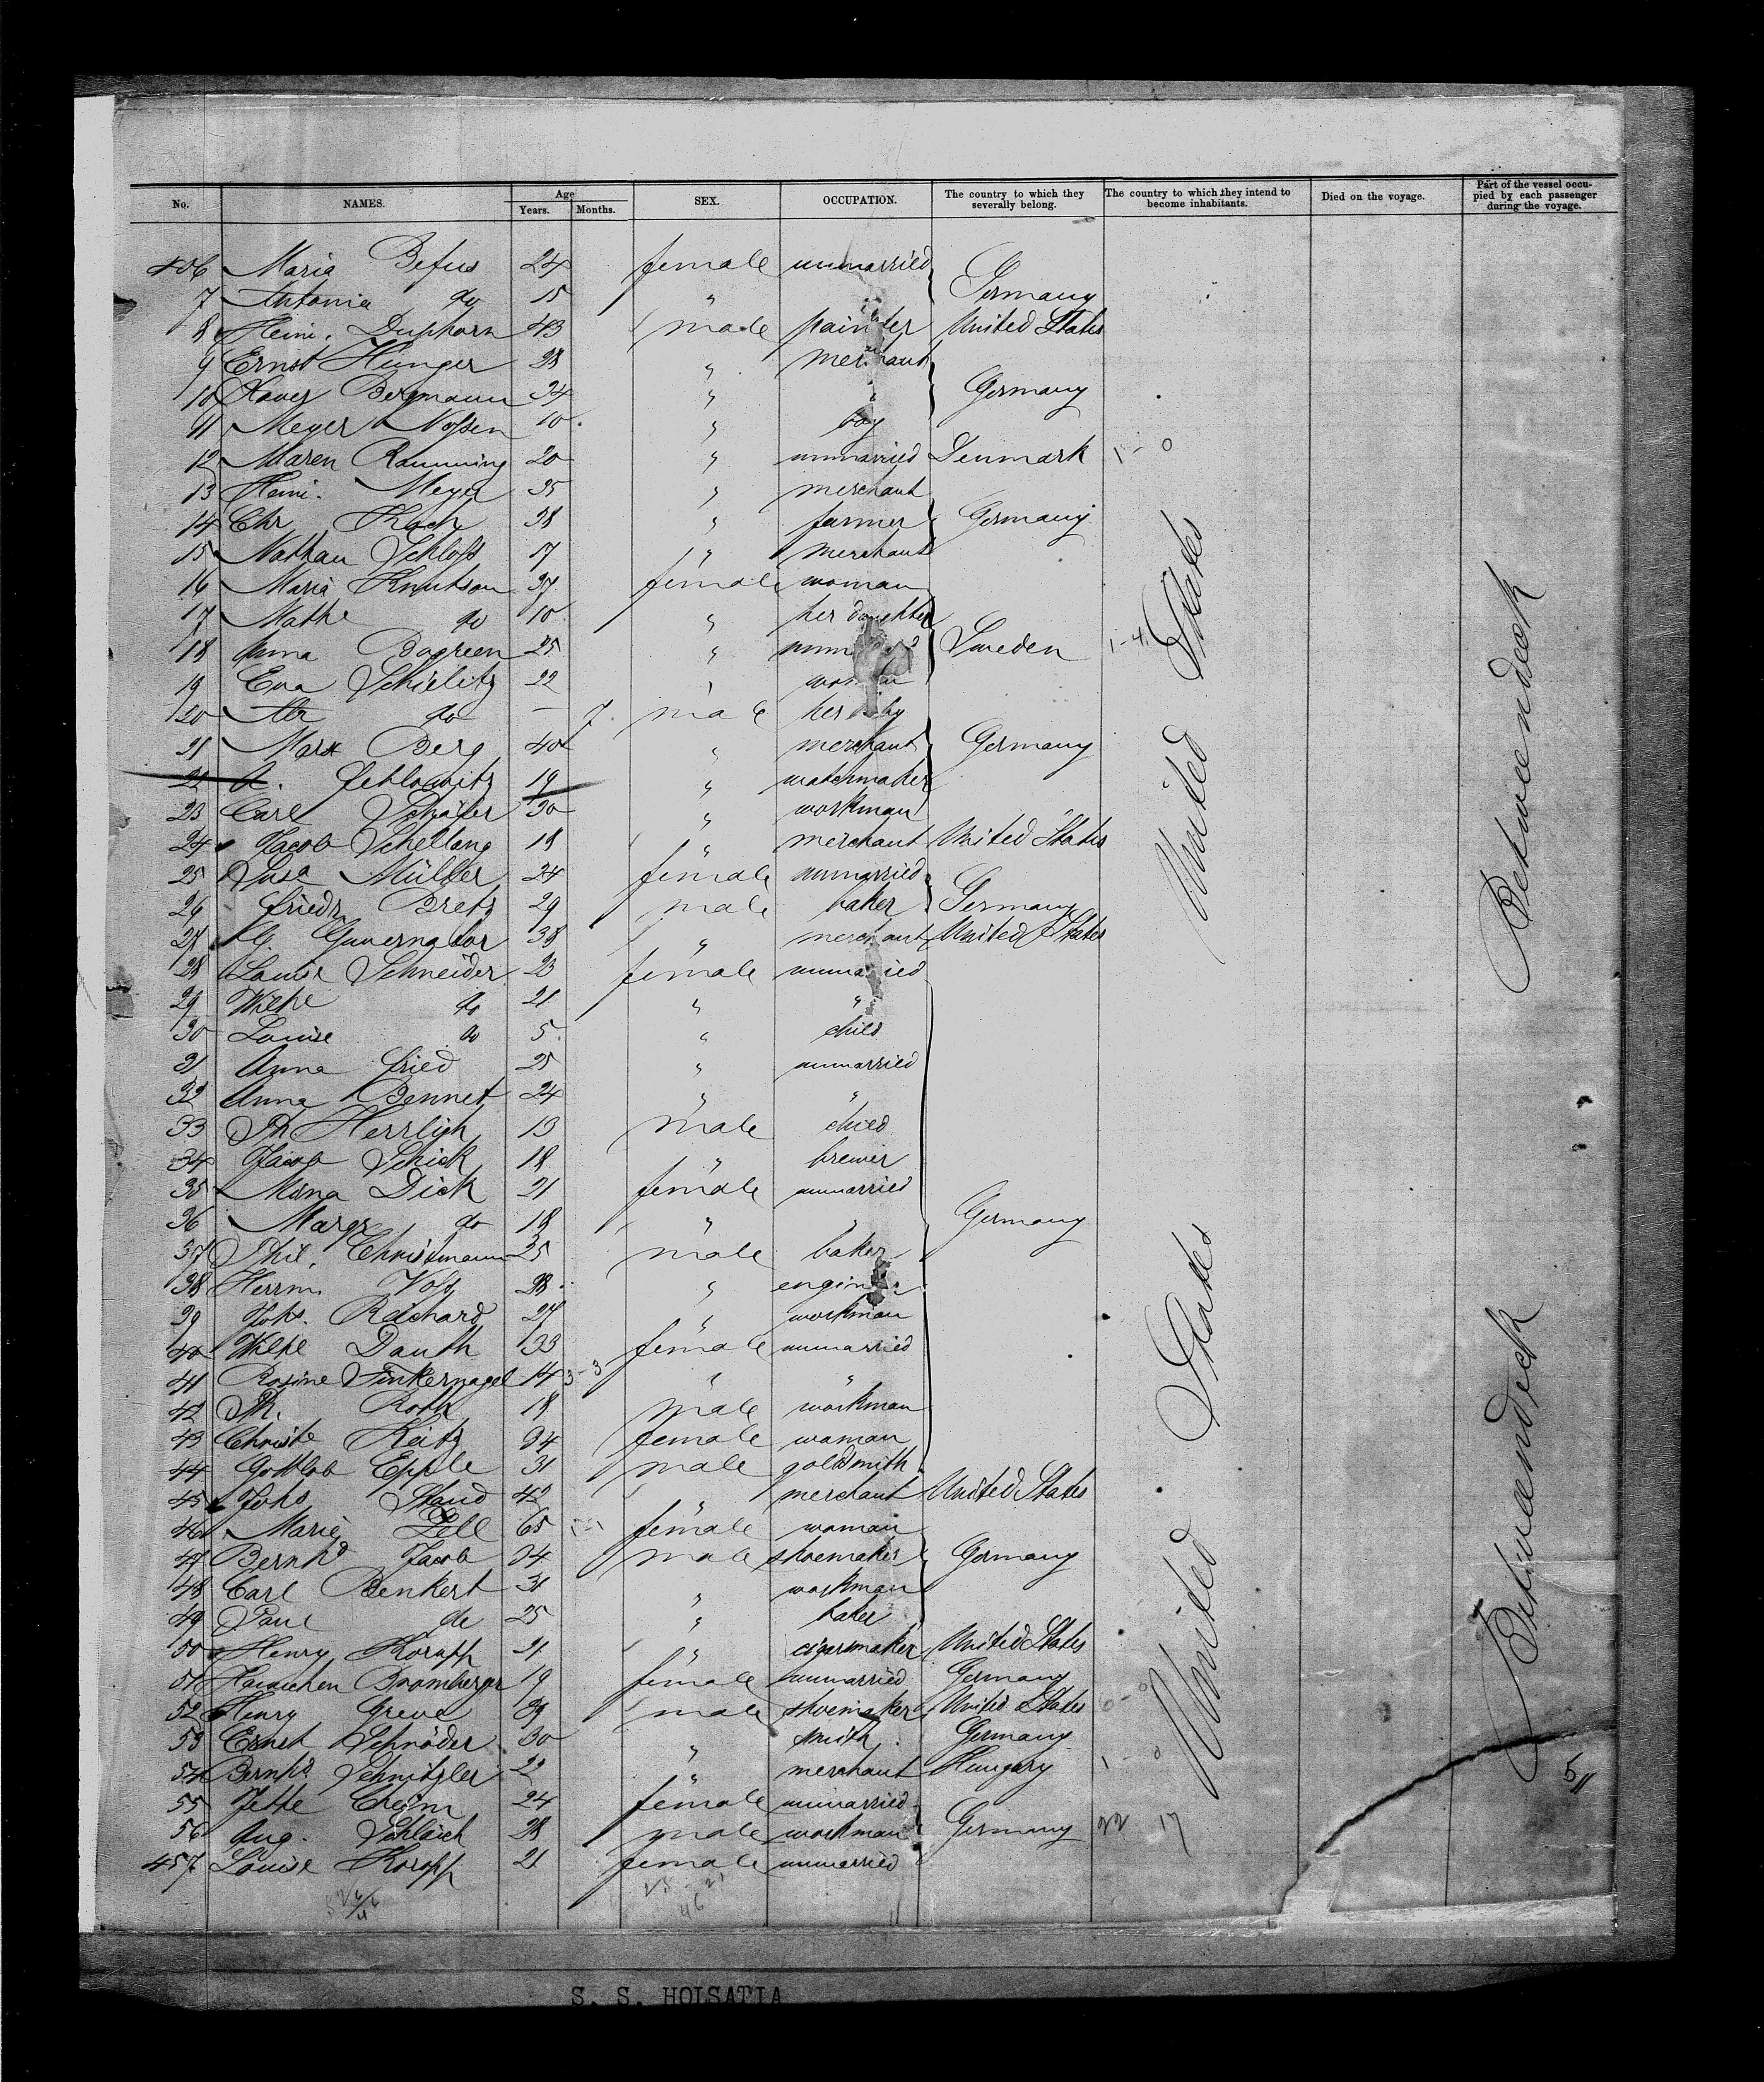 No. NAMES. Age Years. Months. SEX. OCCUPATION. The country to which they severally belong. The country to which they intend to become inhabitants. Died on the voyage. Part of the vessel occupied by each passenger during the voyage.
406 Maria Befus 24 female unmarried
7 Antonia do 15 " Germany
8 Heinr. Duphorn 43 male painter United States
9 Ernst Hunger 28 " merchant
10 Xaver Bergmann 34 " " Germany
11 Meyer Nossen 10 " boy
12 Maren Ramming 20 " unmarried Denmark 1-0
13 Heinr. Meyer 35 " merchant
14 Chr Koch 38 " farmer Germany
15 Nathan Schloss 17 " merchant
16 Maria Knutson 37 female woman
17 Mathe do 10 " her daughter
18 Anna Bogreen 25 " Sweden 1-4
19 Eva Schielitz 22 " woman
20 do — 7 male her baby
21 Max Berg 40 " merchant Germany
22 A. 19 " watchmaker
23 Carl Schäfer 30 " workman
24 Jacob Schellang 18 " merchant United States
25 Susa Müller 24 female unmarried
26 Friedr. Bretz 29 male baker Germany
27 G. Guvernator 38 " merchant United States
28 Louise Schneider 23 female unmarried
29 Wilhe do 21 " "
30 Louise do 5 " child
31 Anna Fried 25 " unmarried
32 Anna Bennet 24 " "
33 Ph Herrligh 13 male child
34 Jacob Schick 18 " brewer
35 Mina Dick 21 female unmarried
36 Margr do 18 " " Germany
37 Phil. Christmann 25 male baker
38 Herrm. Voss 28 " engineer
39 Johs. Reichard 27 " workman
40 Wilhe Dauth 33 female unmarried
41 Rosine Finkernagel 14 3-3 " "
42 Ph. Roth 18 male workman
43 Christe Keitz 34 female woman
44 Gottlob Epple 31 male goldsmith
45 Johs Staud 42 " merchant United States
46 Marie Zell 65 female woman
47 Bernhd Jacob 34 male shoemaker Germany
48 Carl Benkert 31 " workman
49 Paul do 25 " baker
50 Henry Koropp 21 " cigarmaker United States
51 Hannchen Bromberger 19 female unmarried Germany
52 Henry Greve 39 male shoemaker United States 0-0
53 Ernst Schröder 30 " smith Germany
54 Bernhd Schnitzler 22 " merchant Hungary 1-0
55 Jette Cheim 24 female unmarried
56 Aug. Schläich 28 male workman Germany 22 17
457 Louise Koropp 21 female unmarried
United States
United States
Betweendeck
Betweendeck
511
46
S. S. HOLSATIA